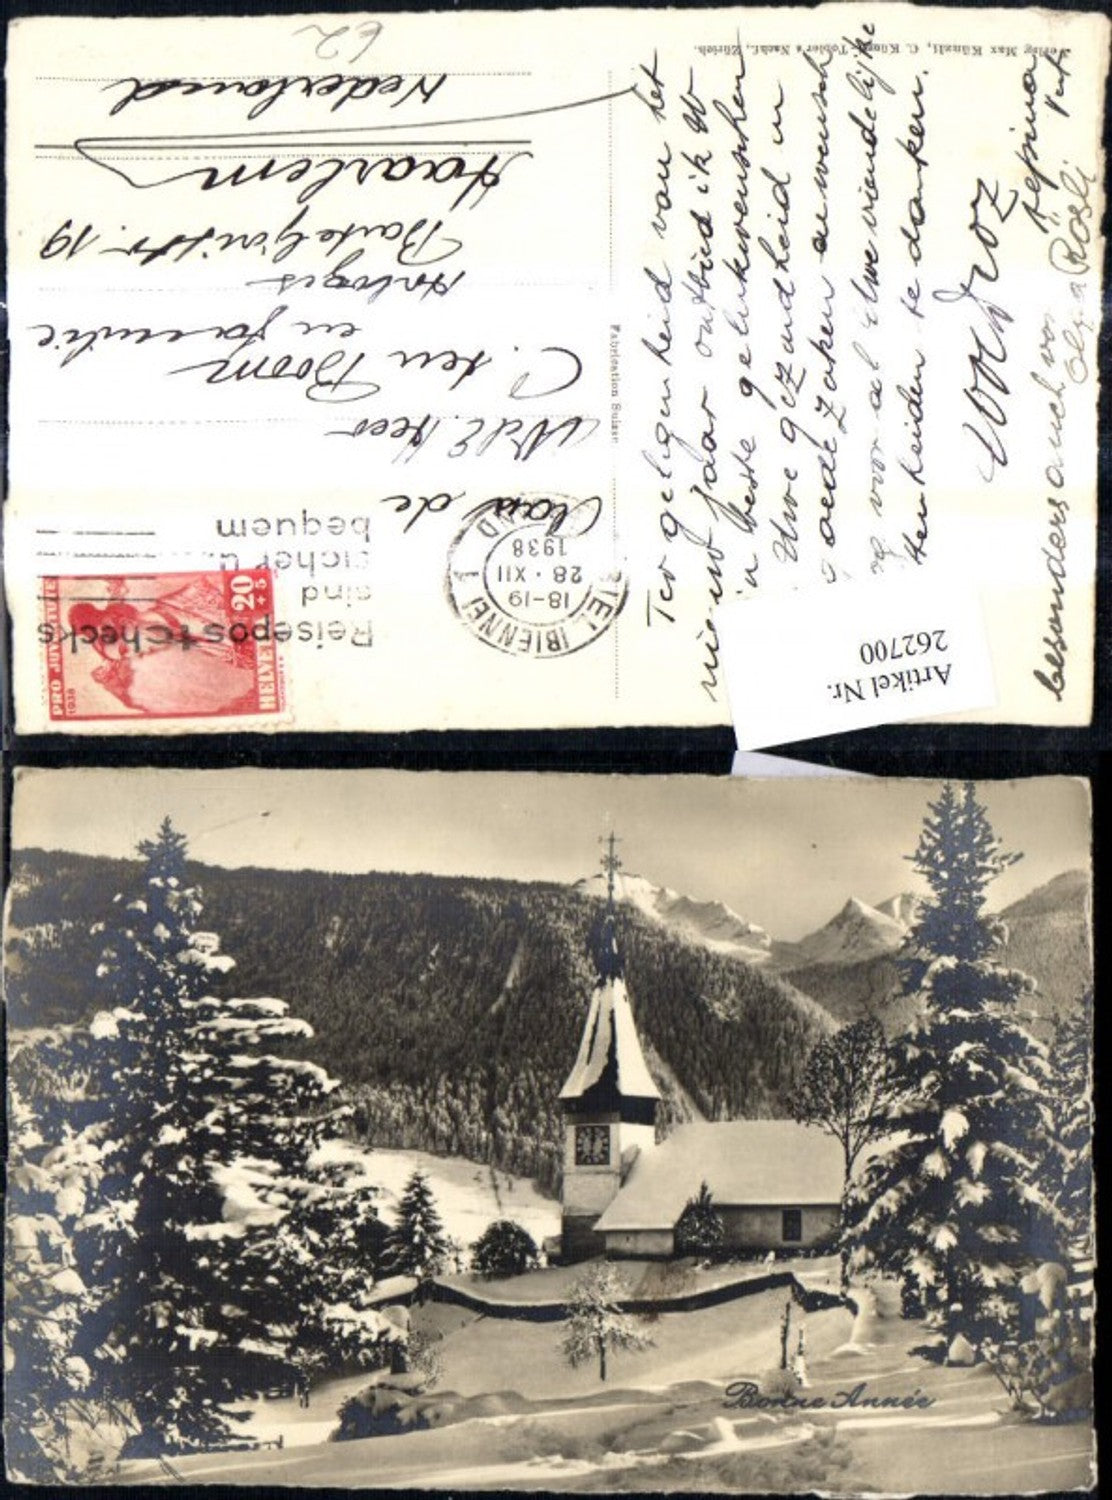 Verlag Max Künzli, C. Künzli-Tobler's Nachf., Zürich.
Fabrication Suisse
Ter gelegenheid van het
nieuw jaar ontbied ik U
mijn beste gelukwenschen
Uwe gezondheid en
goede zaken en wensch
U vooral Uwe vriendelijke
te danken.
Woodroz
besonders auch von
Olga Rösli
Aan de
WelE. Heer
C. ten Boom
en familie
Horloges
Barteljorisstr. 19
Haarlem
Nederland
62
BIEL (BIENNE) 1
18-19
28 · XII
1938
Reisepostchecks
sind
sicher u.
bequem
PRO JUVENTUTE
1938
20
+5
HELVETIA
Artikel Nr.
262700
Bonne Année